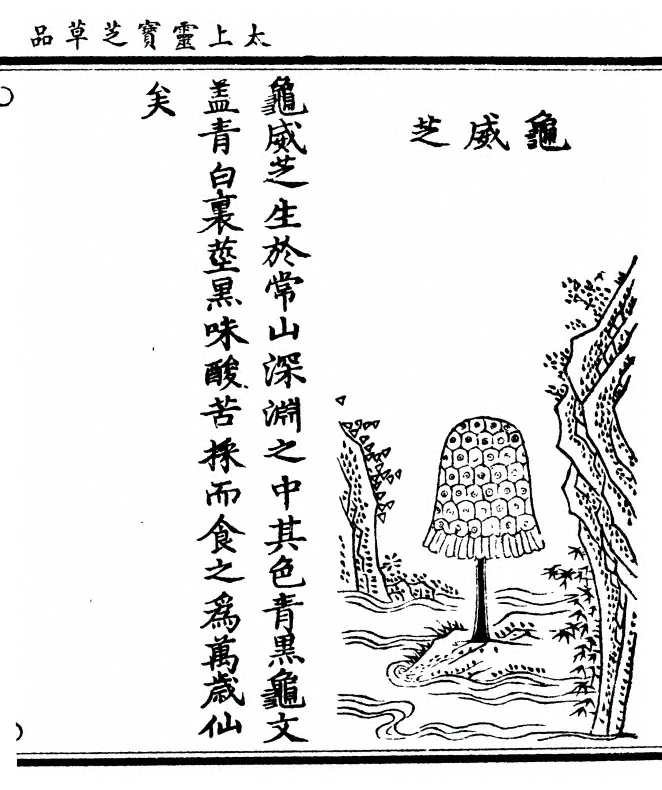 太上靈寶芝草品
龜威芝
龜威芝生於常山深淵之中其色青黑龜文
盖青白裏莖黑味酸苦採而食之為萬歲仙
矣